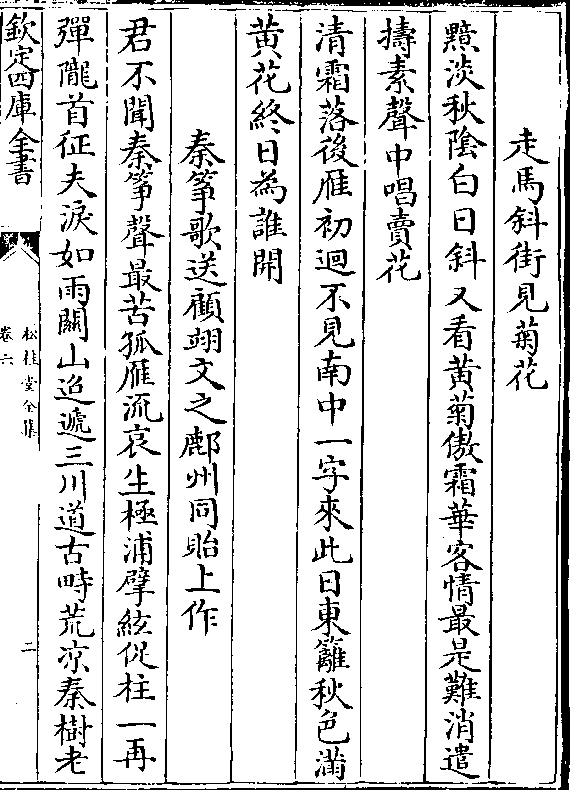 走馬斜街見菊花
黯淡秋陰白日斜又看黃菊傲霜華客情最是難消遣
擣素聲中唱賣花
清霜落後雁初迴不見南中一字來此日東籬秋色滿
黃花終日為誰開
秦箏歌送顧翊文之鄜州同貽上作
君不聞秦箏聲最苦孤雁流哀生極浦擘絃促柱一再
彈隴首征夫淚如雨關山迢遞三川道古畤荒凉秦樹老
欽定四庫全書
松桂堂全集
卷六
二